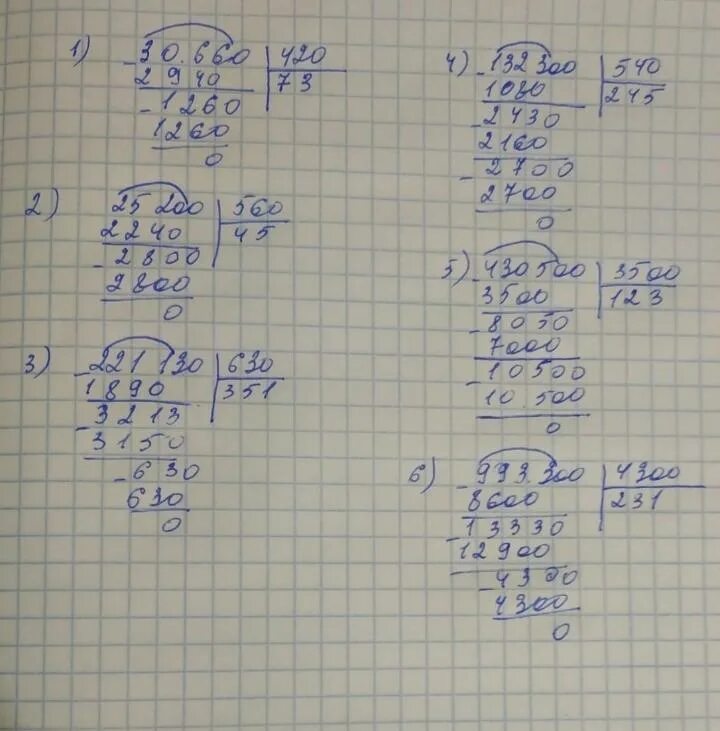 1) - 30.660 | 420
2940 | 73
- 1260
1260
0
2) 25200 | 560
2240 | 45
- 2800
2800
0
3) - 221130 | 630
1890 | 351
- 3213
3150
- 630
630
0
4) - 132300 | 540
1080 | 245
- 2430
2160
- 2700
2700
0
5) - 430500 | 3500
3500 | 123
- 8050
7000
- 10500
10.500
0
6) - 993.300 | 4300
8600 | 231
- 13330
12900
- 4300
4300
0